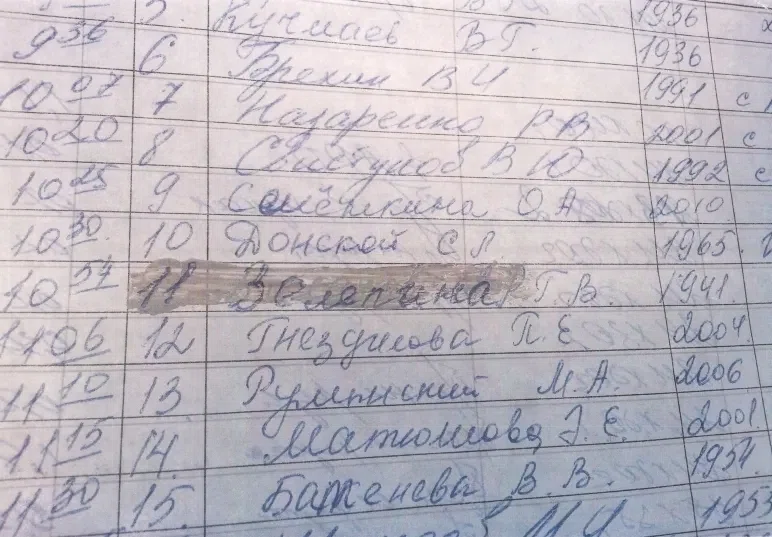 5. Кучмаев В.Г. 1936
9 36 6 Брехин В И 1936
10 07 7 Назаренко Р В 1991 с
10 20 8 Свистунов В Ю 2001 с
10 25 9 Семёнкина О А 1992 с
10 30 10 Донской С Л 2010
10 54 11 Зелепукина Г В. 1965.
11 06 12 Гнездилова П. Е 1941.
11 10 13 Румынский М. А. 2004.
11 15 14. Матюшова З. Е. 2006
11 30 15. Баженова В. В. 2001.
1954.
1953